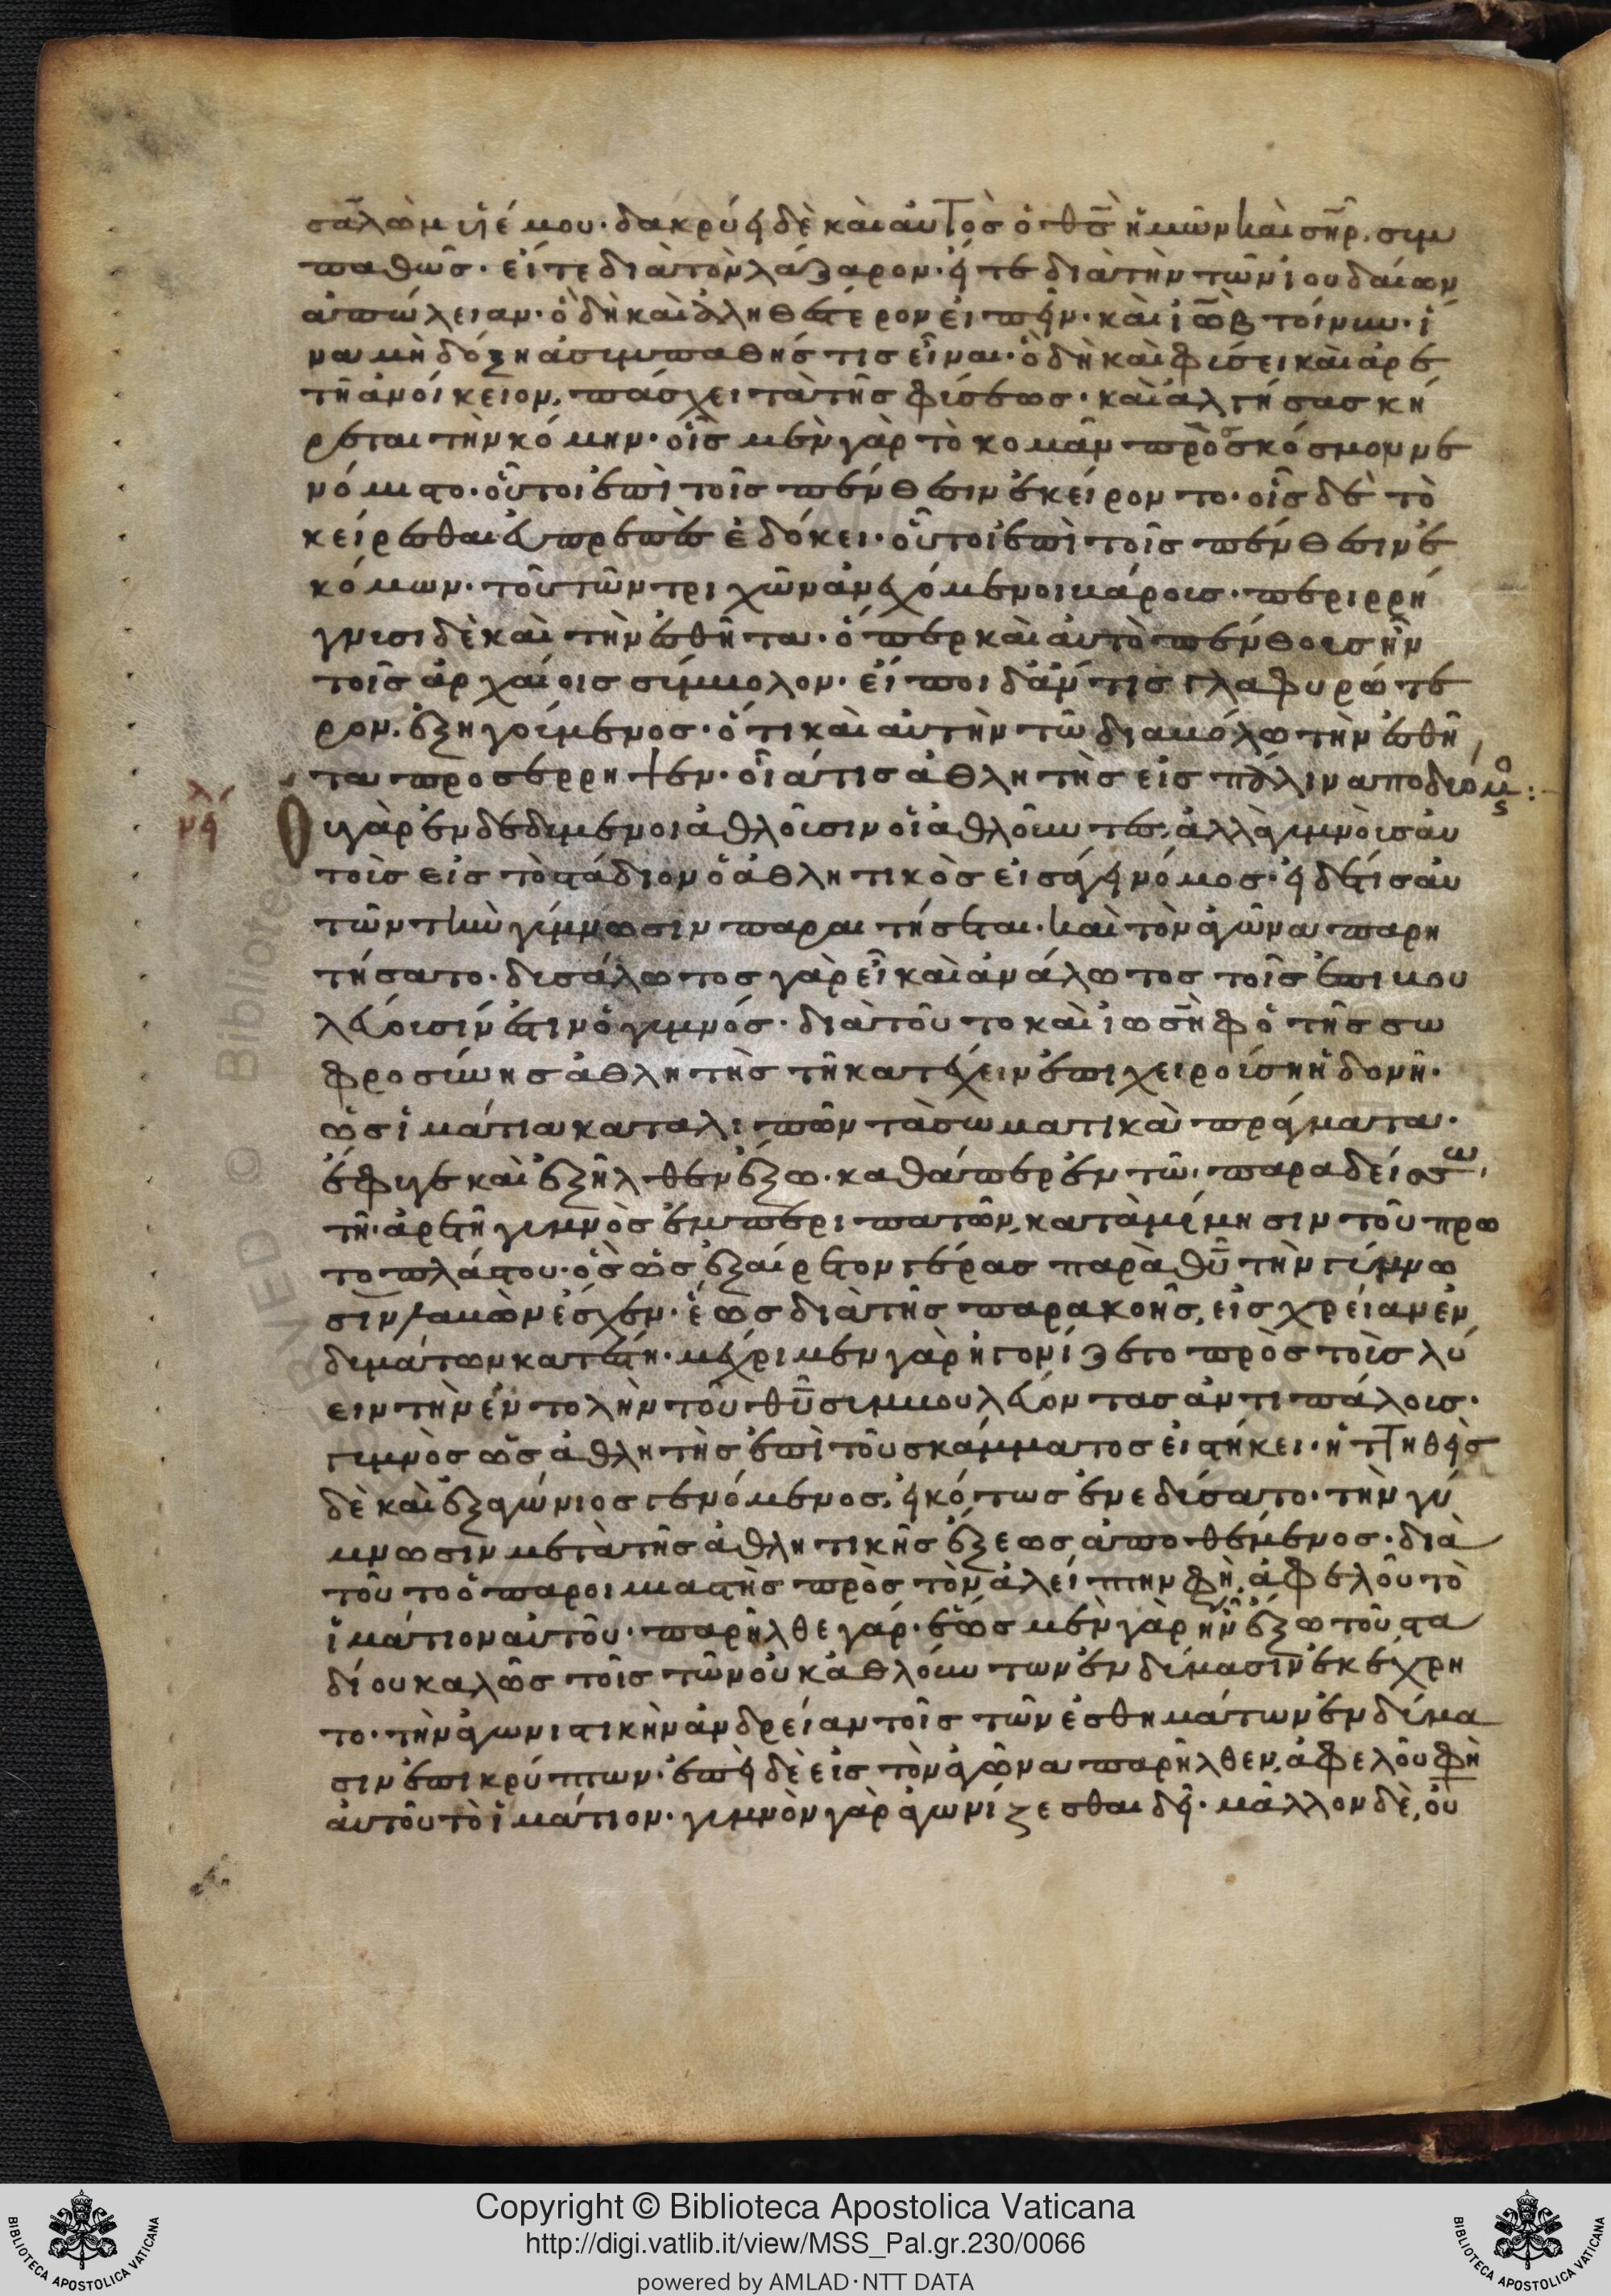 σα̅λὼμ υἱέ μου· δακρύει δὲ καὶ αὐτὸς ὁ θ̅ς̅ ἡμῶν καὶ σ̅η̅ρ̅. συμ
παθῶς· εἴτε διὰ τὸν λάζαρον· εἴτε διὰ τὴν τῶν ἰουδαίων
ἀπώλειαν· ὃ δὴ καὶ ἀληθέστερον εἰπεῖν· καὶ ἰὼβ τοίνυν· ἵ
να μὴ δόξη ἀσυμπαθής τις εἶναι· ὃ δὴ καὶ φύσει καὶ ἀρε
τῆ ἀνοίκειον, πάσχει τὰ τῆς φύσεως· καὶ ἀλγήσας κεί
ρεται τὴν κόμην· οἷς μὲν γὰρ τὸ κομᾶν πρὸς κόσμον νε
νόμιστο· οὗτοι ἐπὶ τοῖς πένθεσιν ἐκείροντο· οἷς δὲ τὸ
κείρεσθαι εὐπρεπὲς ἐδόκει· οὗτοι ἐπὶ τοῖς πένθεσιν ἐ
κόμων· τοῦ τῶν τριχῶν ἀνεχόμενοι βάρους· περιρρή
γνυσι δὲ καὶ τὴν ἐσθῆτα· ὅπερ καὶ αὐτὸ πένθους ἦν
τοῖς ἀρχαίοις σύμβολον· εἴποι δ' ἄν τις γλαφυρώτε
ρον. ἐξηγούμενος· ὅτι καὶ αὐτὴν τῶ διαβόλω τὴν ἐσθῆ
τα προσέρρηψεν· οἷά τις ἀθλητὴς εἰς πάλιν ἀποδυόμενος:
λγ
νει
Οὐ γὰρ ἐνδεδυμένοι ἀθλοῦσιν οἱ ἀθλοῦντες, ἀλλὰ γυμνοὺς αὐ
τοὺς εἰς τὸ στάδιον ὁ ἀθλητικὸς εἰσάγει νόμος· εἰ δέ τις αὐ
τῶν τὴν γύμνωσιν παραιτήσεται· καὶ τὸν ἀγῶνα παρη
τήσατο· δυσάλωτος γὰρ εἶ καὶ ἀνάλωτος τοῖς ἐπιβου
λεύουσίν ἐστιν ὁ γυμνός· διὰ τοῦτο καὶ ἰωσὴφ ὁ τῆς σω
φροσύνης ἀθλητὴς τῆ κατέχειν ἐπιχειρούση ἡδονῆ·
ὡς ἱμάτια καταλιπὼν τὰ σωματικὰ πράγματα·
ἔφυγε καὶ ἐξῆλθεν ἔξω· καθάπερ ἐν τῶ παραδείσω,
τῆ ἀρετῆ γυμνὸς ἐμπεριπατῶν, κατὰ μίμησιν τοῦ πρω
τοπλάστου· ὃς ὡς ἐξαίρετον γέρας παρὰ θ̅υ̅ τὴν γύμνω
σιν λαβὼν ἔσχεν· ἕως διὰ τῆς παρακοῆς, εἰς χρείαν ἐν
δυμάτων κατέστη· μέχρι μὲν γὰρ ἠγωνίζετο πρὸς τοὺς λύ
ειν τὴν ἐντολὴν τοῦ θ̅υ̅ συμβουλεύοντας ἀντιπάλους·
γυμνὸς ὡς ἀθλητὴς ἐπὶ τοῦ σκάμματος εἱστήκει· ἡττηθεὶς
δὲ καὶ ἐξαγώνιος γενόμενος, εἰκότως ἐνεδύσατο· τὴν γύ
μνωσιν μετὰ τῆς ἀθλητικῆς ἕξεως ἀποθέμενος· διὰ
τοῦτο ὁ παροιμιαστὴς πρὸς τὸν ἀλείπτην φη̅, ἀφελοῦ τὸ
ἱμάτιον αὐτοῦ· παρῆλθε γάρ· ἕως μὲν γὰρ ἦν ἔξω τοῦ στα
δίου καλῶς τοῖς τῶν οὐκ ἀθλούντων ἐνδύμασιν ἐκέχρη
το· τὴν ἀγωνιστικὴν ἀνδρείαν τοῖς τῶν ἐσθημάτων ἐνδύμα
σιν ἐπικρύπτων· ἐπεὶ δὲ εἰς τὸν ἀγῶνα παρῆλθεν, ἀφελοῦ φη̅
αὐτοῦ τὸ ἱμάτιον· γυμνὸν γὰρ ἀγωνίζεσθαι δεῖ· μᾶλλον δὲ, οὐ
Copyright © Biblioteca Apostolica Vaticana
http://digi.vatlib.it/view/MSS_Pal.gr.230/0066
powered by AMLAD·NTT DATA
BIBLIOTECA APOSTOLICA VATICANA
BIBLIOTECA APOSTOLICA VATICANA